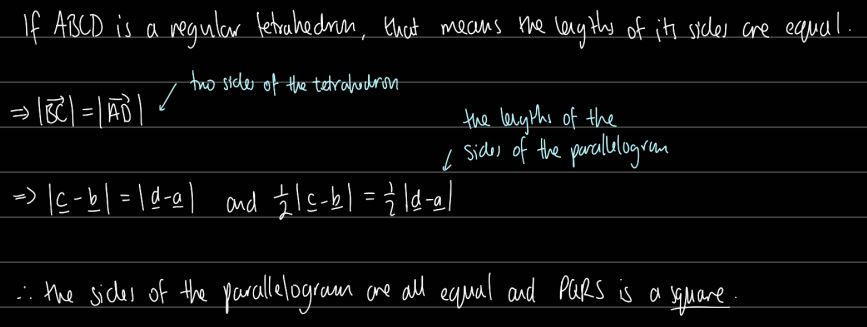 If ABCD is a regular tetrahedron, that means the lengths of its sides are equal.
two sides of the tetrahedron
⇒ |BC→| = |AD→|
the lengths of the
sides of the parallelogram
⇒ |c - b| = |d - a| and 1/2 |c - b| = 1/2 |d - a|
∴ the sides of the parallelogram are all equal and PQRS is a square.